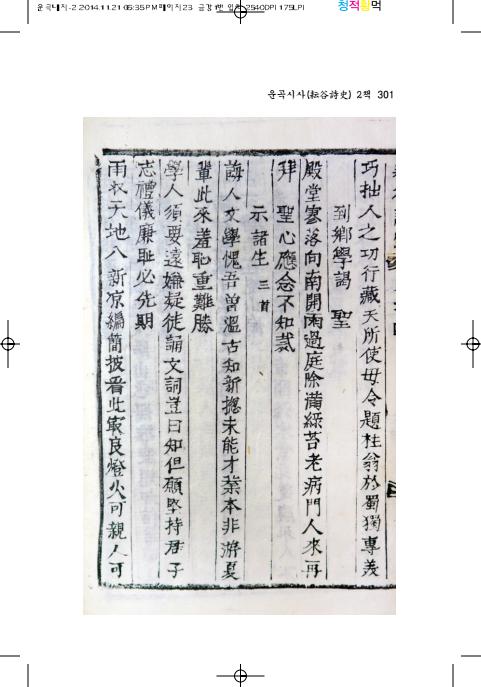 운곡시사(耘谷詩史) 2책 301
巧拙人之功行藏天所使毋令題柱翁於蜀獨專美
到鄕學謁 聖
殿堂寥落向南開雨過庭除滿綠苔老病門人來再
拜 聖心應念不知哉
示諸生 三首
誨人文學愧吾曾溫古知新摠未能才業本非游夏
輩此來羞恥重難勝
學人須要遠嫌疑徒誦文詞豈曰知但願堅持君子
志禮儀廉耻必先期
雨衣天地八新凉編簡披看此㝡良燈火可親人可
청적황먹